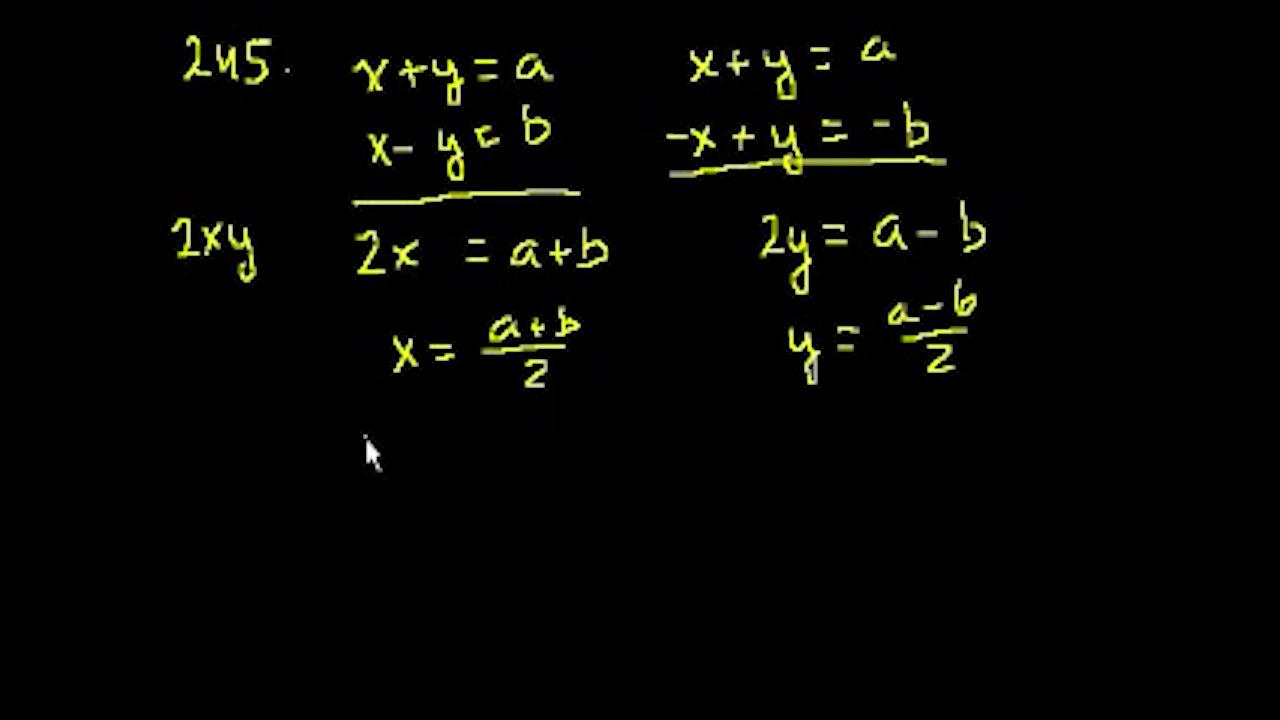 245. x + y = a x + y = a
x - y = b -x + y = -b
2xy 2x = a + b 2y = a - b
x = \frac{a+b}{2} y = \frac{a-b}{2}